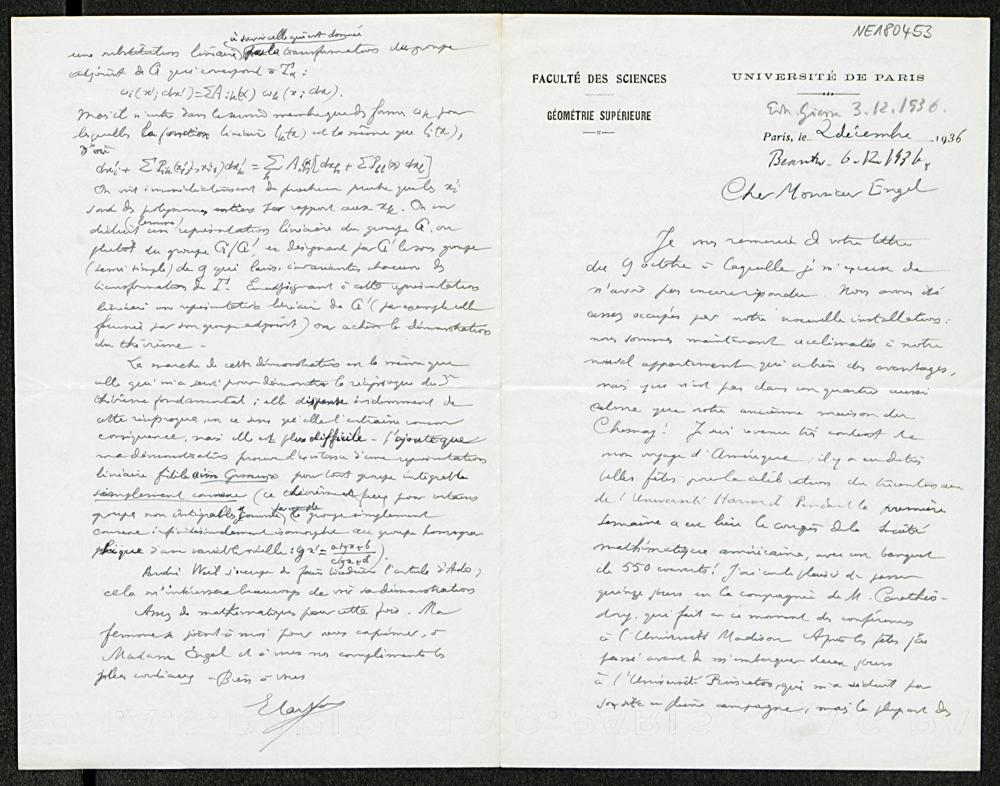 NE180453
FACULTÉ DES SCIENCES
GÉOMÉTRIE SUPÉRIEURE
UNIVERSITÉ DE PARIS
3.12.1936.
Paris, le 2 décembre 1936
6.12.1936
Cher Monsieur Engel
Je vous remercie de votre lettre
du 9 octobre à laquelle je m'excuse de
n'avoir pas encore répondu. Nous avons été
assez occupés par notre nouvelle installation;
nous sommes maintenant acclimatés à notre
nouvel appartement qui a bien des avantages,
mais qui n'est pas dans un quartier aussi
calme que notre ancienne maison du
Chesnay! Je suis revenu très content de
mon voyage d'Amérique; il y a eu de très
belles fêtes pour la célébration du tricentenaire
de l'Université Harvard. Pendant la première
semaine a eu lieu le congrès de la Société
mathématique américaine, avec un banquet
de 550 couverts! J'ai eu le plaisir de passer
quinze jours en la compagnie de M. Carathéo-
dory, qui fait en ce moment des conférences
à l'Université Madison. Après les fêtes j'ai
passé avant de m'embarquer deux jours
à l'Université Princeton, qui m'a séduit par
son site en pleine campagne, mais la plupart des
à savoir celle qui est donnée
une substitution linéaire, par la transformation du groupe
adjoint de G qui correspond à Tα:
ωi(x'; dx') = Σ Aik(α) ωk(x; dx).
Mais il n'entre dans le second membre que des formes ωk pour
lesquelles la fonction linéaire lk(α) est la même que li(α),
d'où
dx'i + Σ Pik(x') dx'k = Σ Aih(α)[dxh + Σ Phk(x) dxk]
On voit immédiatement de proche en proche que les x'i
sont des polynomes entiers par rapport aux xk. On en
déduit (lemme) une représentation linéaire du groupe G, ou
plutôt du groupe G/G', en désignant par G' le sous groupe
(semi simple) de G qui laisse invariantes chacune des
transformations de Γ. En adjoignant à cette représentation
linéaire une représentation linéaire de G' (par exemple celle
fournie par son groupe adjoint) on achève la démonstration
du théorème.
La marche de cette démonstration est la même que
celle qui m'a servi pour démontrer la réciproque du 3e
théorème fondamental; elle dispense évidemment de
cette réciproque, en ce sens qu'elle l'entraîne comme
conséquence, mais elle est plus difficile. J'ajoute que
ma démonstration prouve l'existence d'une représentation
linéaire fidèle pour tout groupe intégrable
simplement connexe (ce théorème est faux pour certains
groupes non intégrables, comme par exemple le groupe simplement
connexe infinitésimalement isomorphe au groupe homogra-
phique d'une variable réelle: tg x' = a tg x + b / c tg x + d).
André Weil s'occupe de faire traduire l'article d'Ado;
cela m'intéressera beaucoup de voir sa démonstration
Assez de mathématiques pour cette fois. Ma
femme se joint à moi pour vous exprimer, à
Madame Engel et à vous nos compliments les
plus cordiaux. Bien à vous
E. Cartan